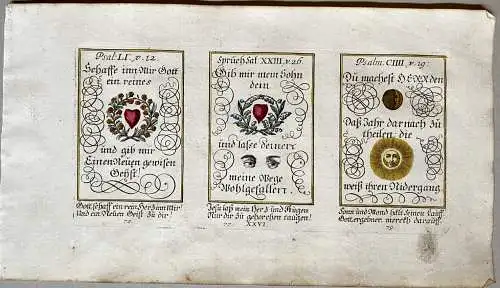 Psal: LI. v. 12.
Schaffe inn Mir Gott
ein reines
und gib mir
Einen Neuen gewisen
Geyst!
Gott schaff ein rein Hertz inn Mir
Und ein Neuen Geist zu dir
Sprüch Sal XXIII. v. 26.
Gib mir mein Sohn
dein
und lasse deinen
meine Wege
Wohlgefallen.
Jesu laß mein Hertz und Augen
Nur dir zu gehorchen taugen!
XXVI.
Psalm. CIIII. v. 19.
Du machest HERR den
Daß Jahr darnach zu
theilen. die
weiß ihren Nidergang
Sonn und Mond hält seinen Lauff.
Gottergebner merckh darauff.